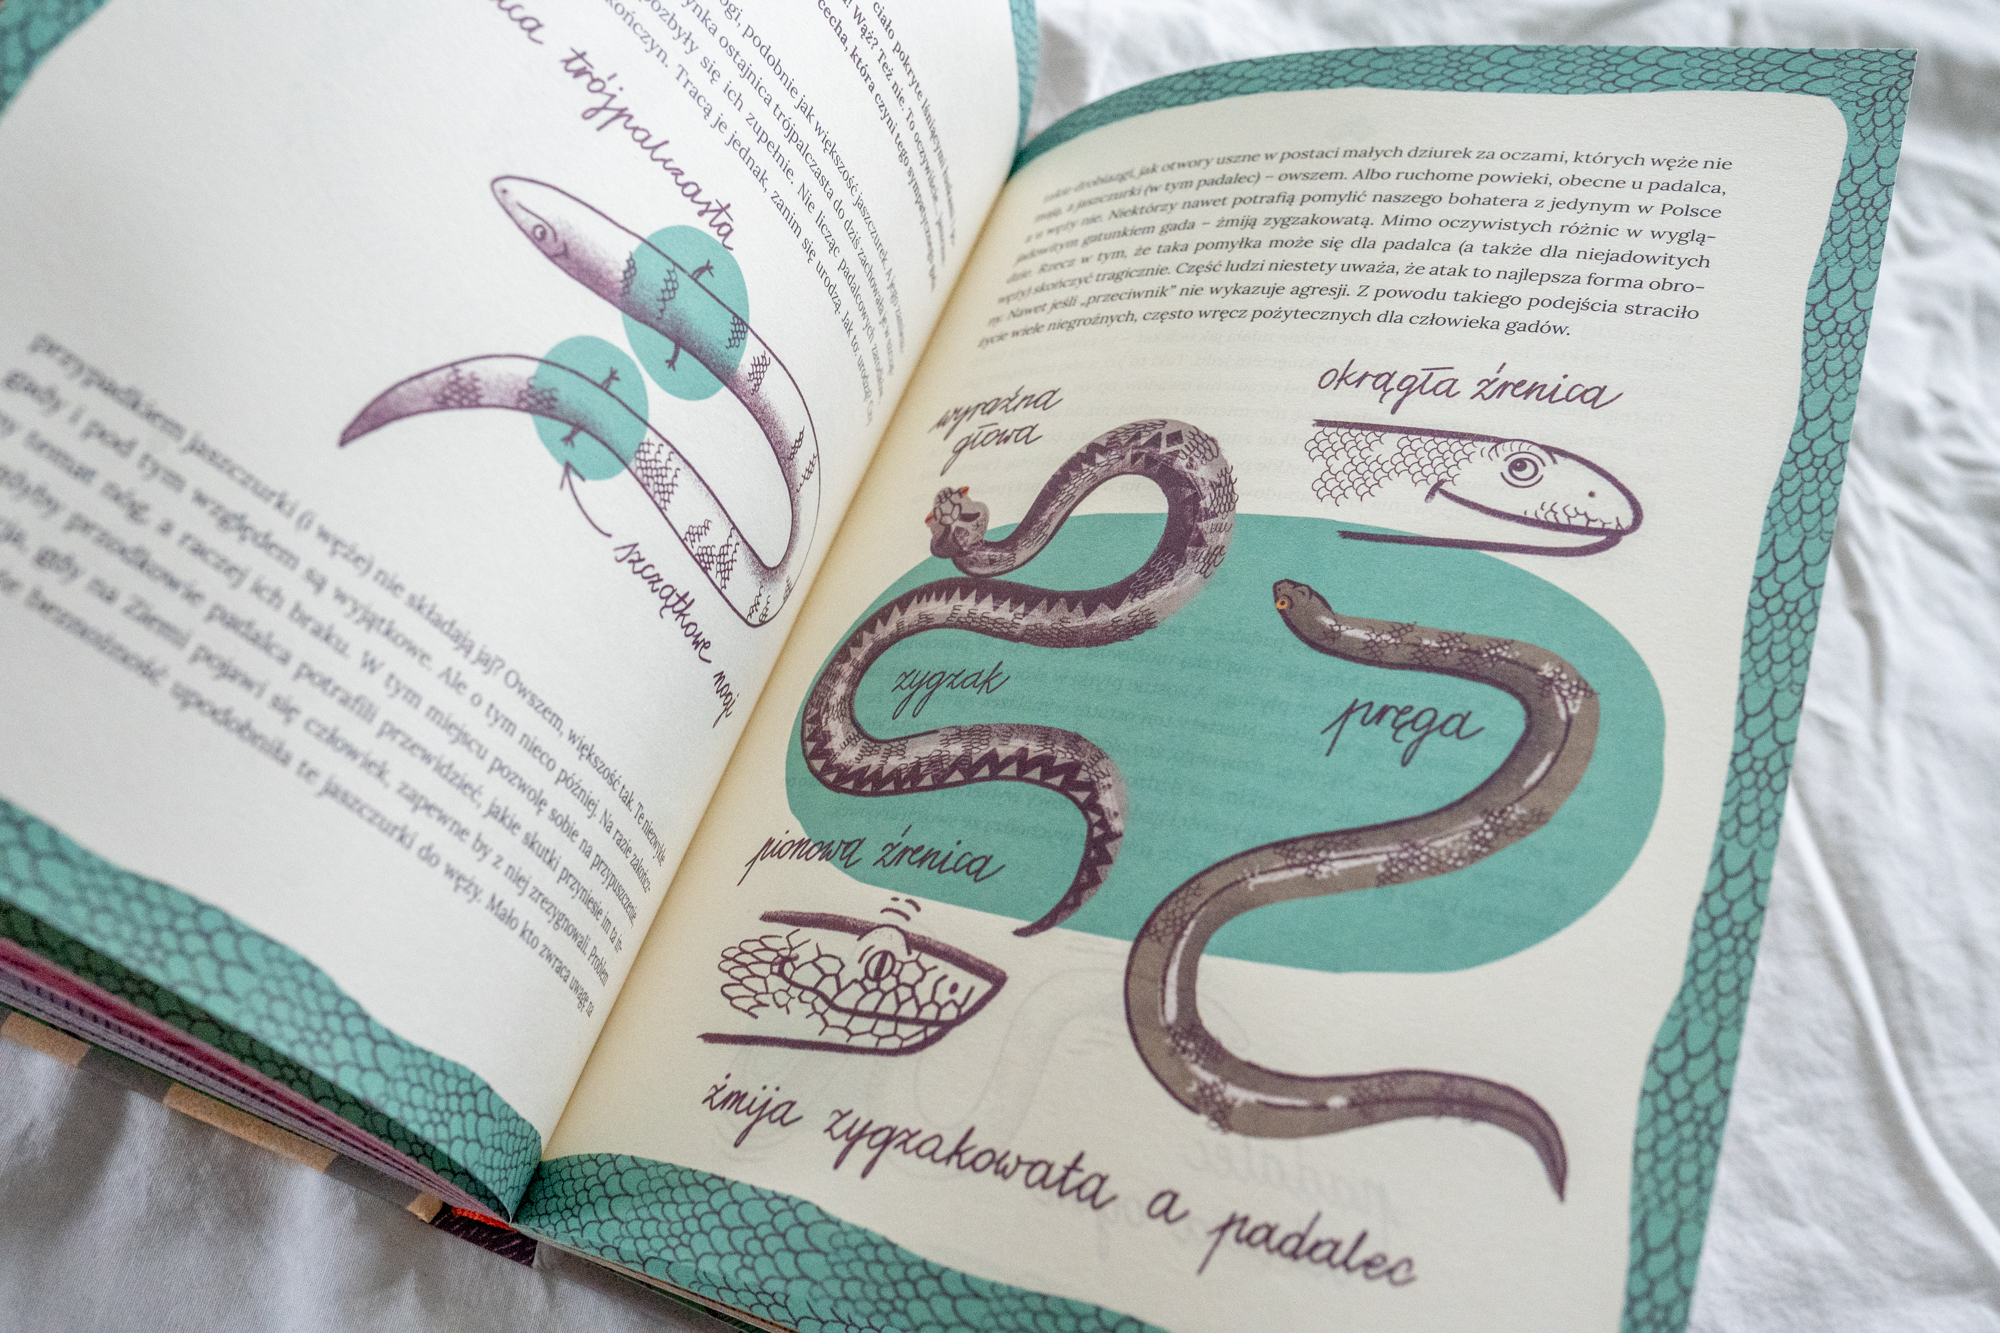 ciało pokryte lśniącymi
Wąż? Też nie. To oczywiście
cecha, która czyni tego sympatycznego
ogi, podobnie jak większość jaszczurek. A jego
ynka ostajnica trójpalczasta do dziś zachowała
pozbyły się ich zupełnie. Nie licząc padalcowych
kończyn. Tracą je jednak, zanim się urodzą. Jak to, urodzą?
trójpalczasta
szczątkowe nogi
przypadkiem jaszczurki (i węże) nie składają jaj? Owszem, większość tak. Te niezwykłe
gady i pod tym względem są wyjątkowe. Ale o tym nieco później. Na razie zakończ-
my temat nóg, a raczej ich braku. W tym miejscu pozwolę sobie na przypuszczenie,
gdyby przodkowie padalca potrafili przewidzieć, jakie skutki przyniesie im ta
gdy na Ziemi pojawi się człowiek, zapewne by z niej zrezygnowali. Problem
że beznożność upodobniła te jaszczurki do węży. Mało kto zwraca uwagę na
takie drobiazgi, jak otwory uszne w postaci małych dziurek za oczami, których węże nie
mają, a jaszczurki (w tym padalec) – owszem. Albo ruchome powieki, obecne u padalca,
a u węży nie. Niektórzy nawet potrafią pomylić naszego bohatera z jedynym w Polsce
jadowitym gatunkiem gada – żmiją zygzakowatą. Mimo oczywistych różnic w wyglą-
dzie. Rzecz w tym, że taka pomyłka może się dla padalca (a także dla niejadowitych
węży) skończyć tragicznie. Część ludzi niestety uważa, że atak to najlepsza forma obro-
ny. Nawet jeśli „przeciwnik” nie wykazuje agresji. Z powodu takiego podejścia straciło
życie wiele niegroźnych, często wręcz pożytecznych dla człowieka gadów.
okrągła źrenica
wyraźna
głowa
zygzak
pręga
pionowa źrenica
żmija zygzakowata a padalec